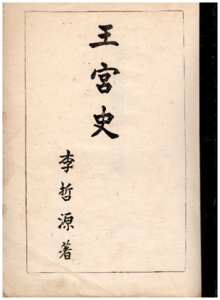 王宮史
李哲源著